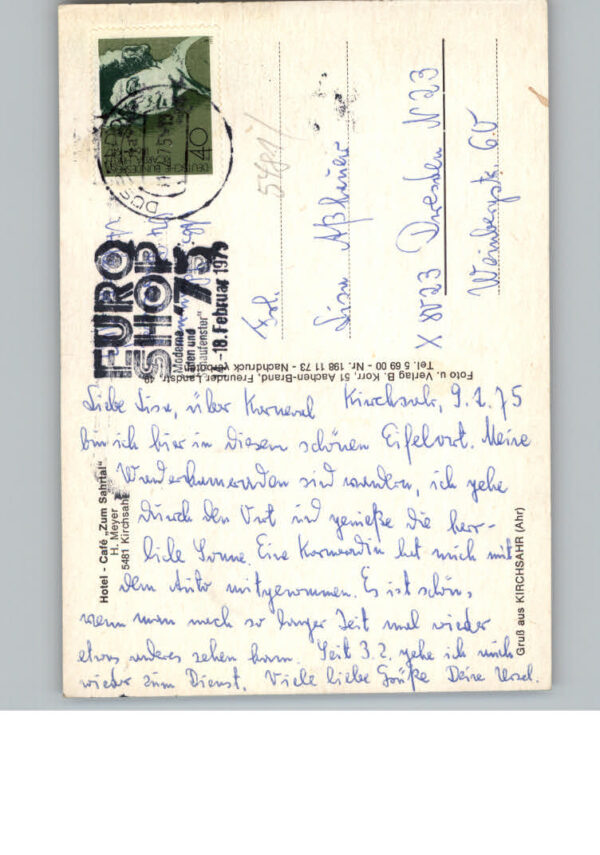 Liebe Lisa, über Karneval Kirchsahr, 9.2.75
bin ich hier in diesem schönen Eifelort. Meine
Wanderkameraden sind wandern, ich gehe
durch den Ort und genieße die herr-
liche Sonne. Eine Kameradin hat mich mit
dem Auto mitgenommen. Es ist schön,
wenn man nach so langer Zeit mal wieder
etwas anderes sehen kann. Seit 3.2. gehe ich auch
wieder zum Dienst. Viele liebe Grüße Deine Ursel.
Frl.
Lisa
X 8023 Dresden N 23
Weinbergstr. 60
5481/
DEUTSCHE BUNDESPOST
40
EURO
SHOP
'75
Moderne
Läden und
Schaufenster"
-18. Februar 1975
Foto u. Verlag B. Korr, 51 Aachen-Brand, Freunder Landstr. 49
Tel. 5 69 00 - Nr. 198 11 73 - Nachdruck verboten
Hotel - Café „Zum Sahrtal"
H. Meyer
5481 Kirchsahr
Gruß aus KIRCHSAHR (Ahr)